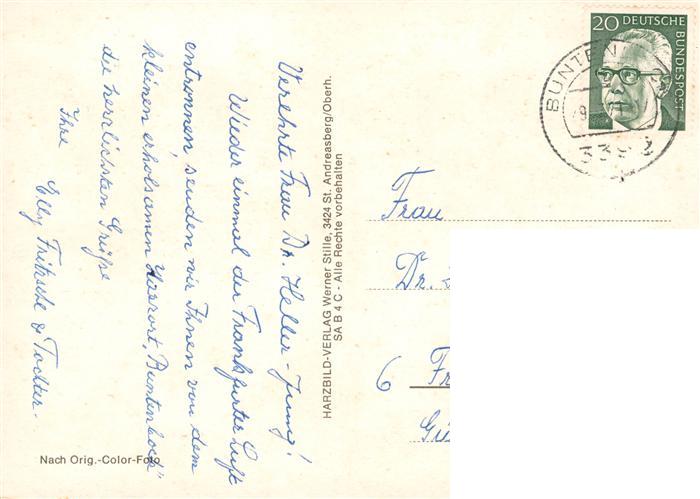 Verehrte Frau Dr. Heller-Jung!
Wieder einmal der Frankfurter Luft
entronnen, senden wir Ihnen von dem
kleinen erholsamen Kurort „Buntenbock"
die herzlichsten Grüße
Ihre
Elly Fritzsche & Tochter.
Nach Orig.-Color-Foto
HARZBILD-VERLAG Werner Stille, 3424 St. Andreasberg/Oberh.
SA B 4 C - Alle Rechte vorbehalten
20 DEUTSCHE
BUNDESPOST
BUNTEN
Frau
Dr.
6 Fr